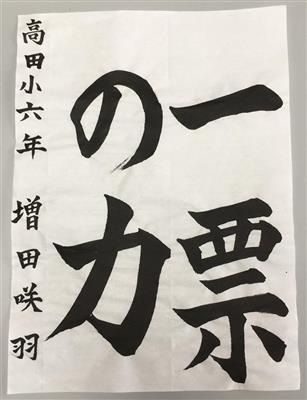 一票
の力
高田小六年 増田咲羽